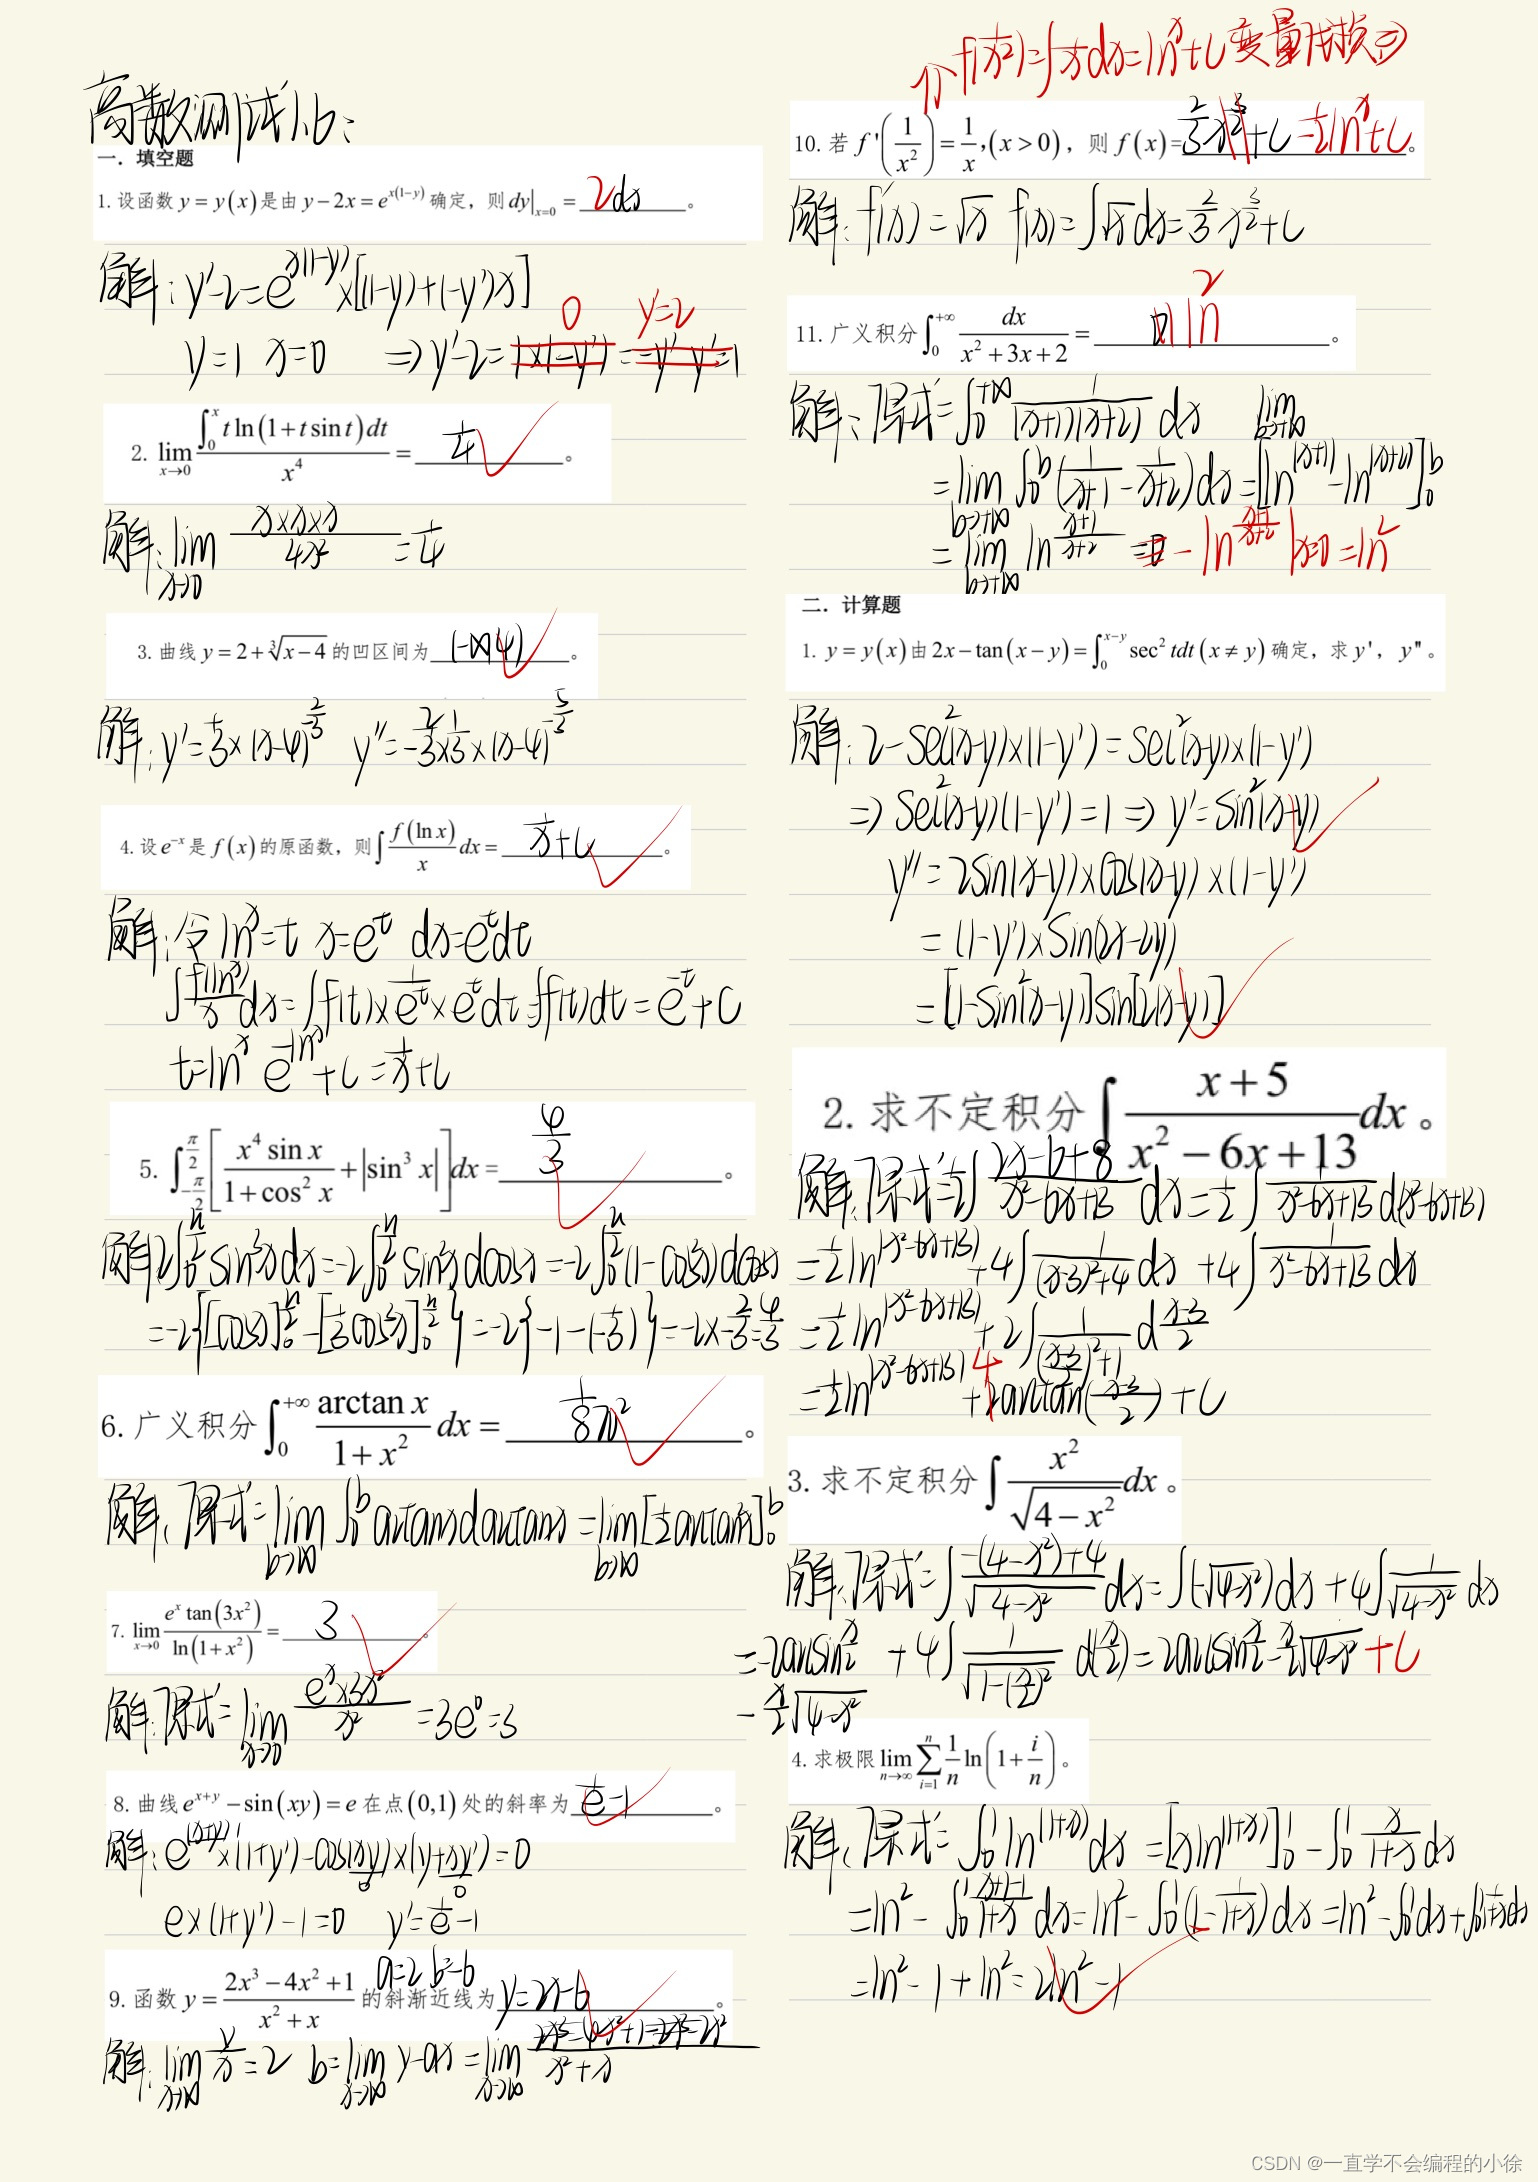 高数测试1.6:
一. 填空题
1. 设函数 y = y(x) 是由 y − 2x = e^{x(1−y)} 确定，则 dy|_{x=0} = 2dx 。
解: y'−2=e^{x(1−y)}×[(1−y)+(−y')x]
0 y'=2
y=1 x=0 ⇒ y'−2=
2. lim_{x→0} ∫_0^x t ln(1+t sin t)dt / x^4 = 1/4 。
解: lim_{x→0} x×x×x / 4x^3 = 1/4
3. 曲线 y = 2 + ∛(x−4) 的凹区间为 (−∞,4) 。
解: y'=1/3×(x−4)^{−2/3} y''=−2/3×1/3×(x−4)^{−5/3}
4. 设 e^{−x} 是 f(x) 的原函数，则 ∫ f(ln x)/x dx = 1/x+C 。
解: 令 ln^x=t x=e^t dx=e^t dt
∫ f(ln^x)/x dx=∫f(t)×1/e^t×e^t dt=∫f(t)dt=e^{−t}+C
t=ln^x e^{−ln^x}+C=1/x+C
5. ∫_{−π/2}^{π/2} [x^4 sin x/(1+cos^2 x) + |sin^3 x|]dx = 4/3 。
解: 2∫_0^{π/2} sin^3x dx=−2∫_0^{π/2} sin^2x dcosx=−2∫_0^{π/2}(1−cos^2x)dcosx
=−2{[cosx]_0^{π/2}−[1/3cos^3x]_0^{π/2}}=−2{−1−(−1/3)}=−2×−2/3=4/3
6. 广义积分 ∫_0^{+∞} arctan x/(1+x^2) dx = 1/8π^2 。
解: 原式=lim_{b→∞} ∫_0^b arctanx darctanx=lim_{b→∞}[1/2arctan^2x]_0^b
7. lim_{x→0} e^x tan(3x^2)/ln(1+x^2) = 3 。
解: 原式=lim_{x→0} e^x×3x^2/x^2=3e^0=3
8. 曲线 e^{x+y} − sin(xy) = e 在点 (0,1) 处的斜率为 1/e−1 。
解: e^{(x+y)}×(1+y')−cos(xy)×(y+xy')=0
0 0
e×(1+y')−1=0 y'=1/e−1
a=2 b=−6
9. 函数 y = (2x^3−4x^2+1)/(x^2+x) 的斜渐近线为 y=2x−6 。
解: lim_{x→∞} y/x=2 b=lim_{x→∞} y−ax=lim_{x→∞} (2x^3−4x^2+1−2x^3−2x^2)/(x^2+x)
f(1/x^2)=∫1/x dx=ln^x+C 变量代换
10. 若 f'(1/x^2) = 1/x, (x>0)，则 f(x)= 2/3x^{3/2}+C −1/2ln^x+C 。
解: f'(x)=√x f(x)=∫√x dx=2/3x^{3/2}+C
11. 广义积分 ∫_0^{+∞} dx/(x^2+3x+2) = ln^2 。
解: 原式=∫_0^{+∞} 1/((x+1)(x+2)) dx lim_{b→+∞}
=lim_{b→+∞} ∫_0^b (1/(x+1)−1/(x+2))dx=[ln^{(x+1)}−ln^{(x+2)}]_0^b
=lim_{b→+∞} ln^{(x+1)/(x+2)} =0−ln^{(x+1)/(x+2)}|x=0=ln^2
二. 计算题
1. y = y(x) 由 2x − tan(x−y) = ∫_0^{x−y} sec^2 tdt (x≠y) 确定，求 y'，y''。
解: 2−sec^2(x−y)×(1−y')=sec^2(x−y)×(1−y')
⇒ sec^2(x−y)(1−y')=1 ⇒ y'=sin^2(x−y)
y''=2sin(x−y)×cos(x−y)×(1−y')
=(1−y')×sin(2x−2y)
=[1−sin^2(x−y)]sin[2(x−y)]
2. 求不定积分 ∫ (x+5)/(x^2−6x+13) dx 。
解: 原式=1/2∫ (2x−6+8)/(x^2−6x+13) dx=1/2∫ 1/(x^2−6x+13) d(x^2−6x+13)
=1/2ln^{(x^2−6x+13)}+4∫ 1/((x−3)^2+4) dx +4∫ 1/(x^2−6x+13) dx
=1/2ln^{(x^2−6x+13)}+2∫ 1/(((x−3)/2)^2+1) d(x−3)/2
=1/2ln^{(x^2−6x+13)}+4arctan((x−3)/2)+C
3. 求不定积分 ∫ x^2/√(4−x^2) dx 。
解: 原式=∫ (−(4−x^2)+4)/√(4−x^2) dx=∫(−√(4−x^2))dx+4∫ 1/√(4−x^2) dx
=−2arcsin x/2 +4∫ 1/√(1−(x/2)^2) d(x/2)=2arcsin x/2−x/2√(4−x^2)+C
−x/2√(4−x^2)
4. 求极限 lim_{n→∞} ∑_{i=1}^n 1/n ln(1+i/n) 。
解: 原式=∫_0^1 ln^{(1+x)}dx=[xln^{(1+x)}]_0^1−∫_0^1 x/(1+x) dx
=ln^2−∫_0^1 (x+1−1)/(1+x) dx=ln^2−∫_0^1(1−1/(1+x))dx=ln^2−∫_0^1dx+∫_0^1 1/(1+x) dx
=ln^2−1+ln^2=2ln^2−1
CSDN @一直学不会编程的小徐